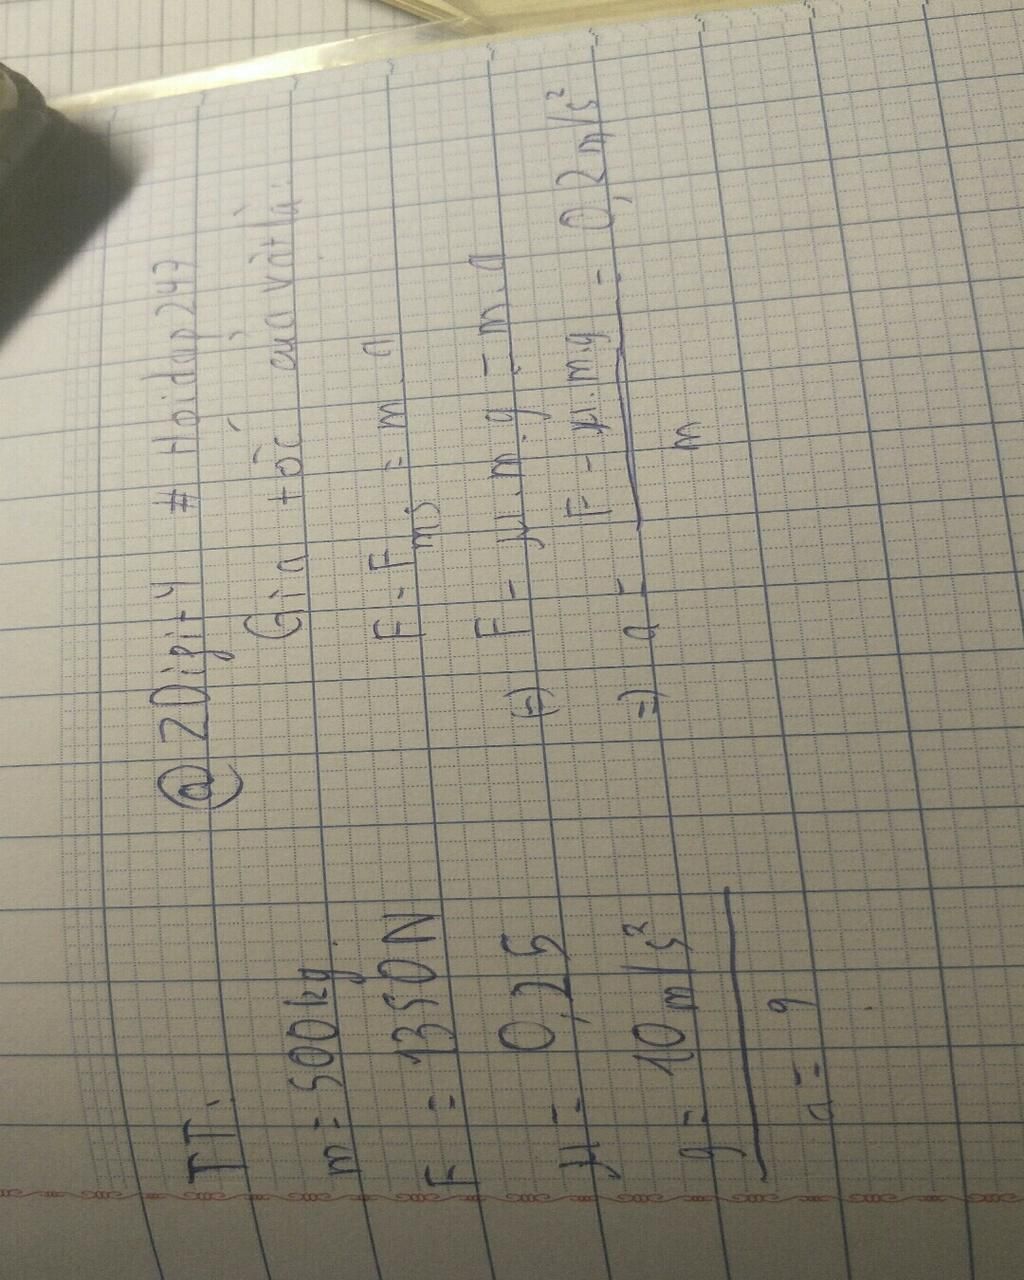 TT:
m = 500kg
F = 1350N
μ = 0,25
g = 10m/s²
a = ?
@ZDigit4 # Hoidap247
Gia tốc của vật là:
F - Fms = m.a
(=) F - μ.m.g = m.a
=) a = (F - μ.m.g)/m = 0,2m/s²